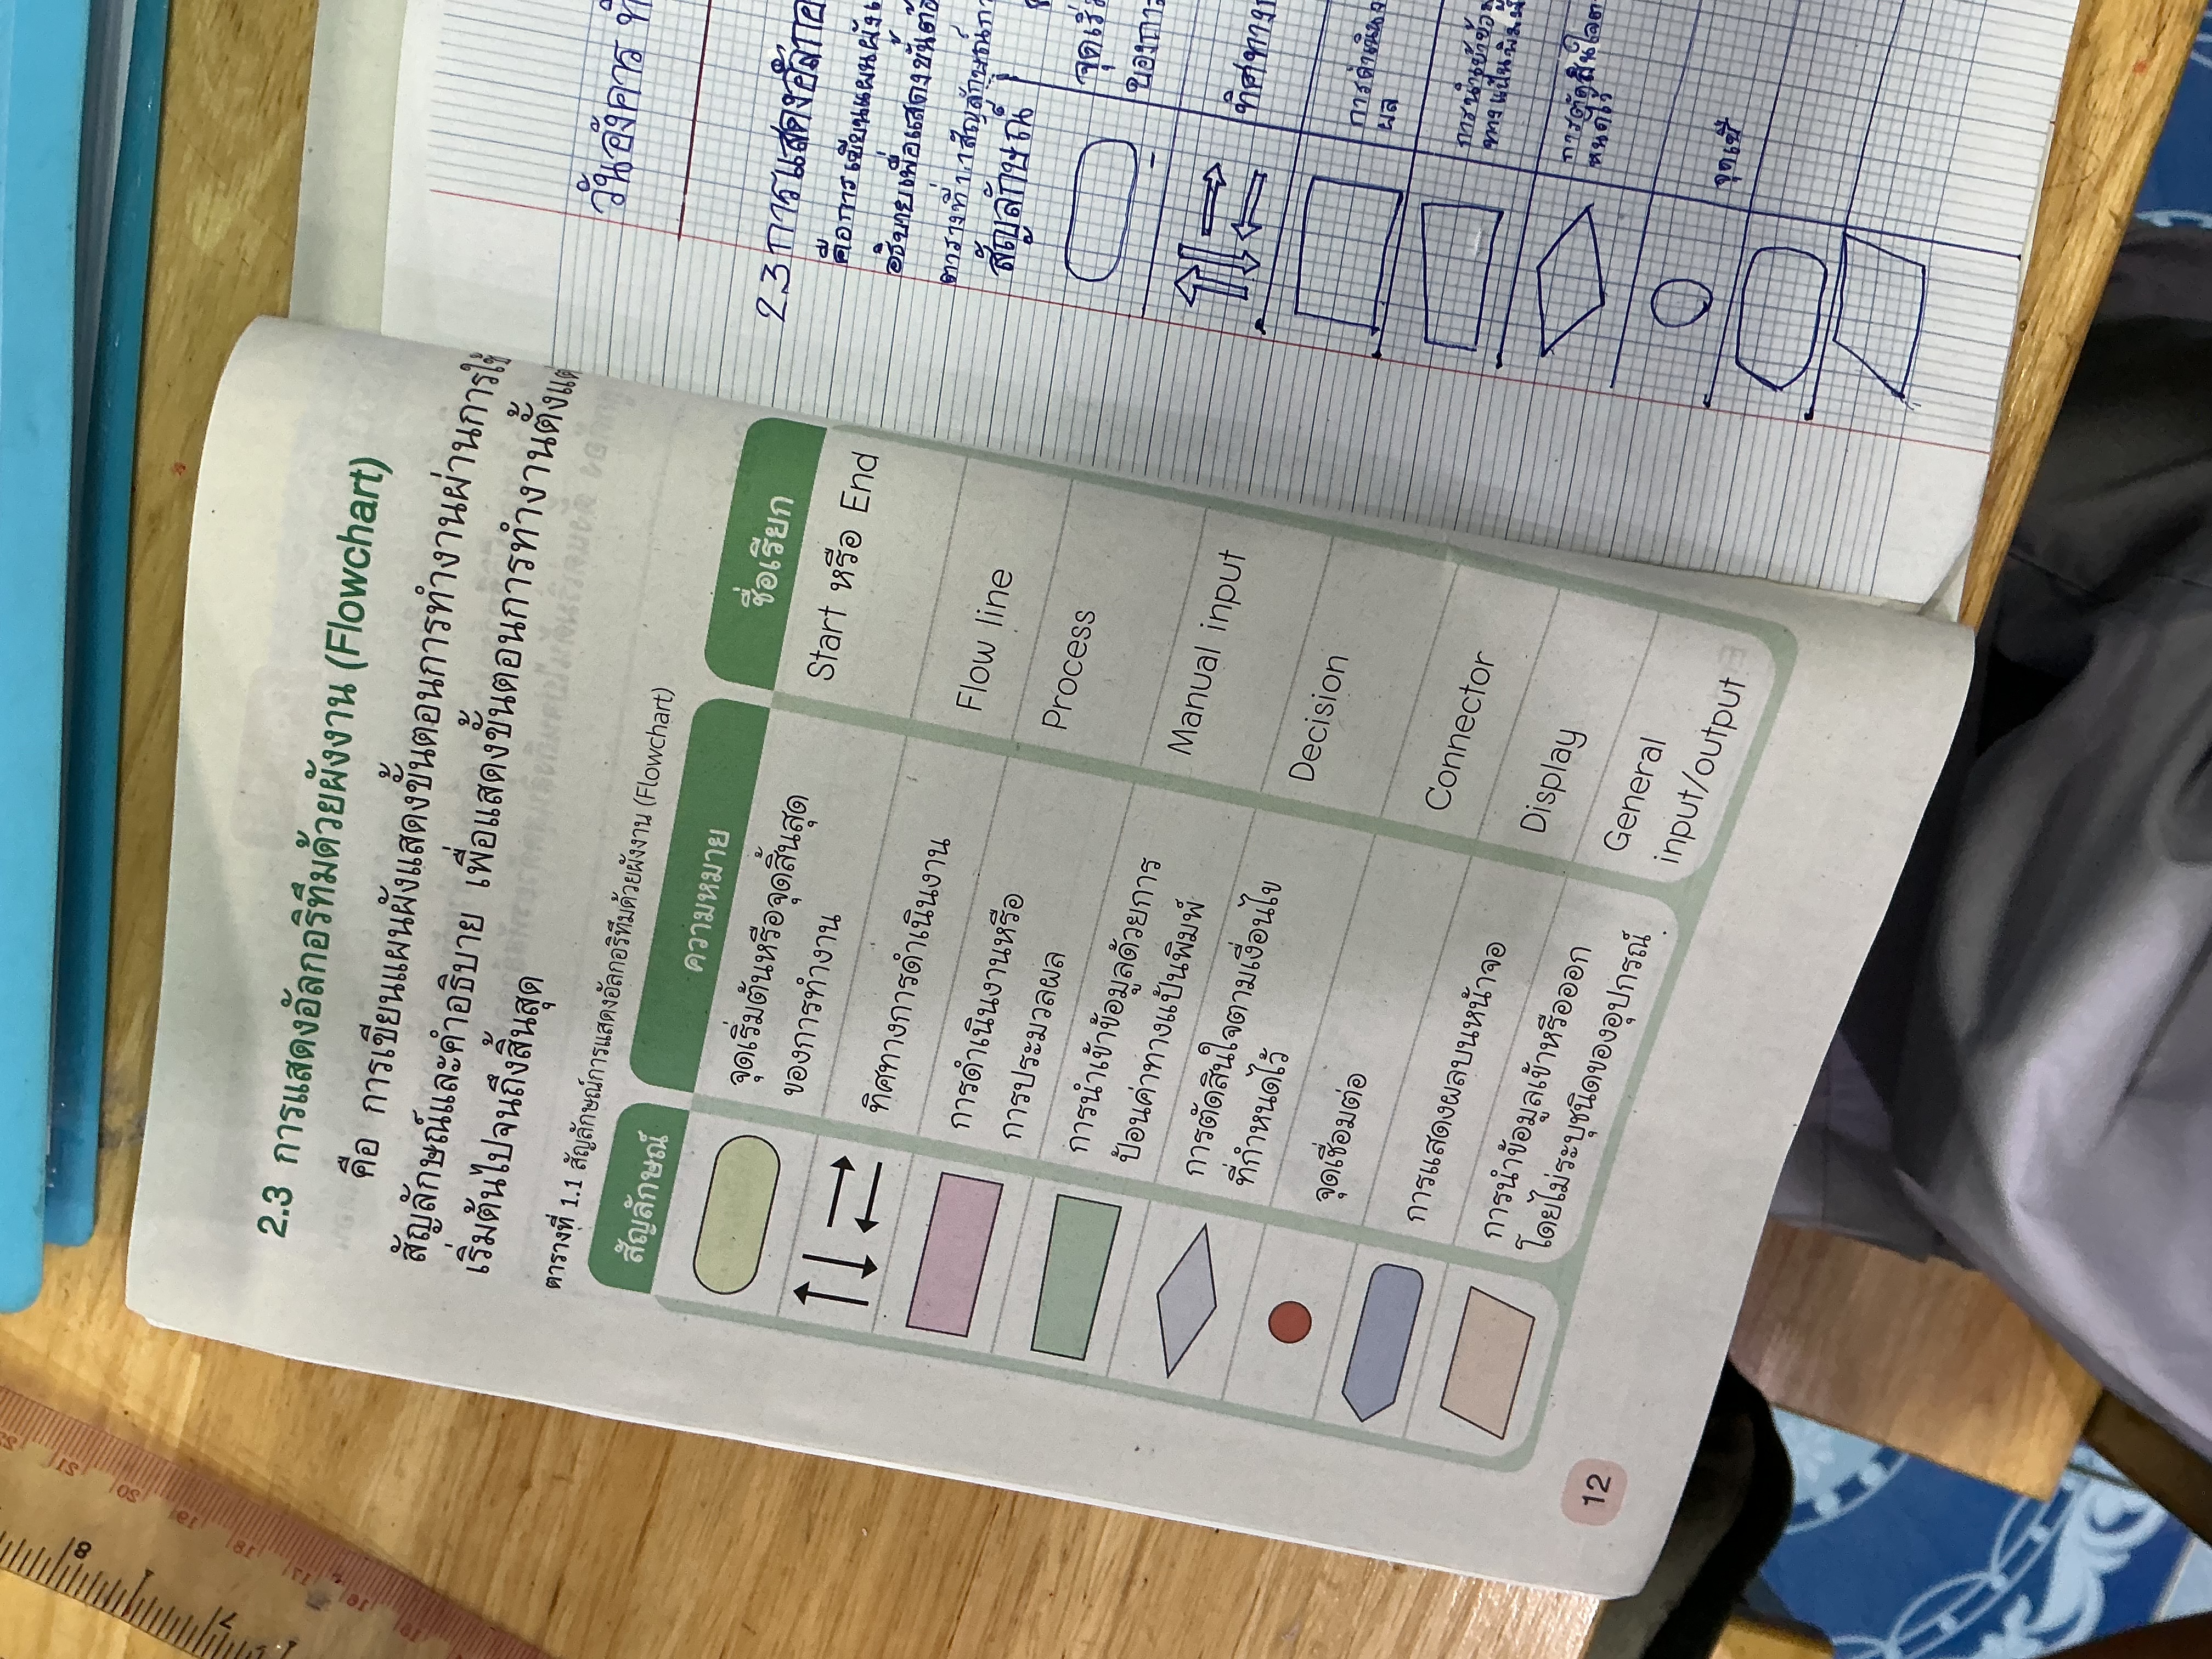 2.3 การแสดงอัลกอริทึมด้วยผังงาน (Flowchart)
คือ การเขียนแผนผังแสดงขั้นตอนการทำงานผ่านการใช้
สัญลักษณ์และคำอธิบาย เพื่อแสดงขั้นตอนการทำงานตั้งแต่
เริ่มต้นไปจนถึงสิ้นสุด
ตารางที่ 1.1 สัญลักษณ์การแสดงอัลกอริทึมด้วยผังงาน (Flowchart)
สัญลักษณ์ ความหมาย ชื่อเรียก
จุดเริ่มต้นหรือจุดสิ้นสุด Start หรือ End
ของการทำงาน
ทิศทางการดำเนินงาน Flow line
การดำเนินงานหรือ Process
การประมวลผล
การนำเข้าข้อมูลด้วยการ Manual input
ป้อนค่าทางแป้นพิมพ์
การตัดสินใจตามเงื่อนไข Decision
ที่กำหนดไว้
จุดเชื่อมต่อ Connector
การแสดงผลบนหน้าจอ Display
การนำข้อมูลเข้าหรือออก General
โดยไม่ระบุชนิดของอุปกรณ์ input/output
12
วันอังคาร ที่
2.3 การแสดงอัลกอ
คือการเขียนแผนผังแ
อธิบายเพื่อแสดงขั้นตอ
ตารางที่ 1.1 สัญลักษณ์กา
สัญลักษณ์
จุดเริ่
ของการ
ทิศทางก
การดำเนินง
ผล
การนำเข้าข้อม
ทางแป้นพิมพ์
การตัดสินใจต
หนดไว้
จุดเชื่
8
7
21
20
19
18
17
16